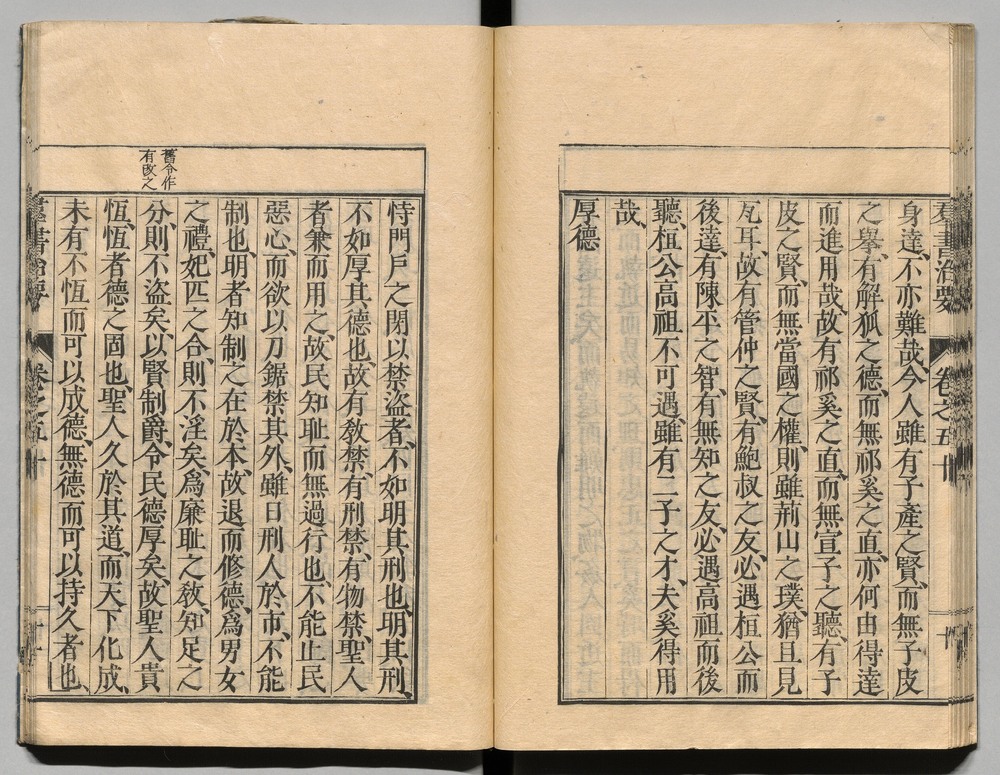 羣書治要 卷之五十
身達不亦難哉、今人雖有子產之賢、而無子皮
之舉、有解狐之德、而無祁奚之直、亦何由得達
而進用哉、故有祁奚之直、而無宣子之聽、有子
皮之賢、而無當國之權、則雖荊山之璞、猶且見
瓦耳、故有管仲之賢、有鮑叔之友、必遇桓公而
後達、有陳平之智、有無知之友、必遇高祖而後
聽、桓公高祖不可遇、雖有二子之才、夫奚得用
哉、
厚德
舊令作
有改之
恃門戶之閉以禁盜者、不如明其刑也、明其刑、
不如厚其德也、故有教禁、有刑禁、有物禁、聖人
者兼而用之、故民知耻而無過行也、不能止民
惡心、而欲以刀鋸禁其外、雖日刑人於市、不能
制也、明者知制之在於本、故退而修德、爲男女
之禮、妃匹之合、則不淫矣、爲廉耻之教、知足之
分、則不盜矣、以賢制爵、令民德厚矣、故聖人貴
恆、恆者德之固也、聖人久於其道、而天下化成、
未有不恆而可以成德、無德而可以持久者也、
羣書治要 卷之五十